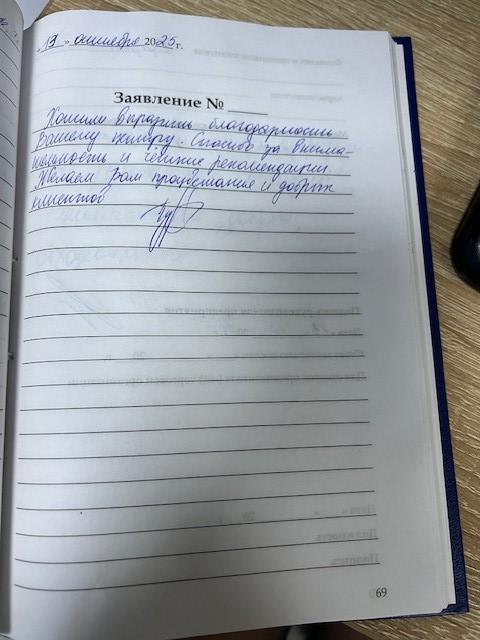 « 13 » октября 2025 г.
Заявление №
Хотим выразить благодарность
Вашему центру. Спасибо за внима-
тельность и чёткие рекомендации
Желаем Вам процветания и добрых
клиентов
69